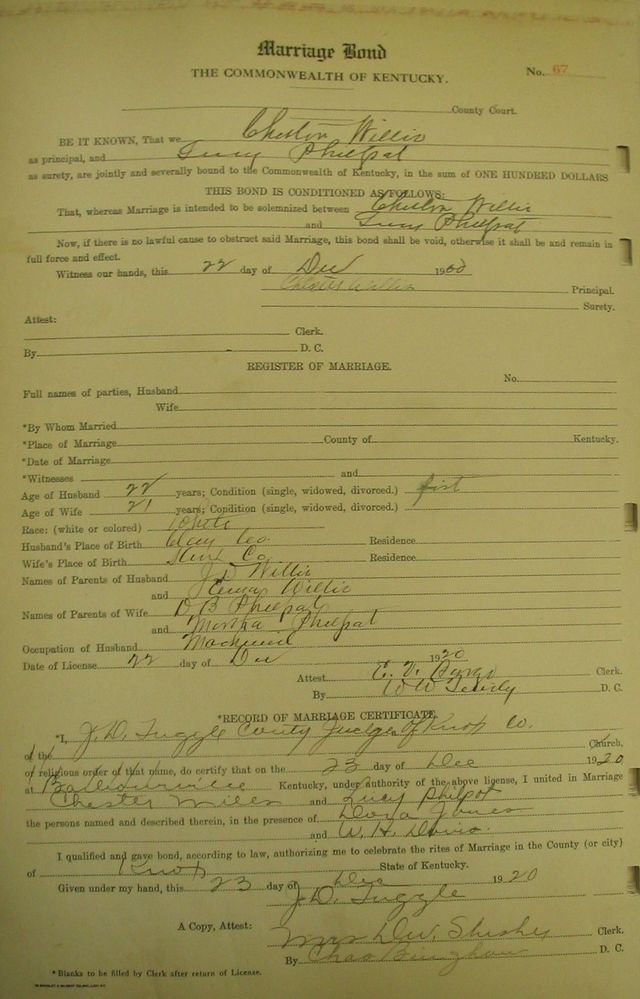 Marriage Bond
THE COMMONWEALTH OF KENTUCKY.
No. 67
County Court.
BE IT KNOWN, That we Chester Willis
as principal, and Lucy Philpat
as surety, are jointly and severally bound to the Commonwealth of Kentucky, in the sum of ONE HUNDRED DOLLARS
THIS BOND IS CONDITIONED AS FOLLOWS:
That, whereas Marriage is intended to be solemnized between Chester Willis
and Lucy Philpat
Now, if there is no lawful cause to obstruct said Marriage, this bond shall be void, otherwise it shall be and remain in
full force and effect.
Witness our hands, this 22 day of Dec 19
Chester Willis Principal.
Surety.
Attest:
Clerk.
By D. C.
REGISTER OF MARRIAGE.
No.
Full names of parties, Husband
Wife
*By Whom Married
*Place of Marriage County of Kentucky.
*Date of Marriage
*Witnesses and
Age of Husband 22 years; Condition (single, widowed, divorced.) first
Age of Wife 21 years; Condition (single, widowed, divorced.)
Race: (white or colored) White
Husband's Place of Birth Clay Co. Residence
Wife's Place of Birth Co Residence
Names of Parents of Husband J D Willis
and Willis
Names of Parents of Wife D B Philpat
and Martha Philpat
Occupation of Husband
Date of License 22 day of Dec 1920
Attest E. V. Clerk.
By W W D. C.
*RECORD OF MARRIAGE CERTIFICATE.
*I, J. D. Tuggle County Judge of Knox Co.
of the Church,
of religious order of that name, do certify that on the 23 day of Dec 1920
at Barbourville Kentucky, under authority of the above license, I united in Marriage
Chester Mills and Lucy Philpot
the persons named and described therein, in the presence of Dora Jones
and W. H. Davis.
I qualified and gave bond, according to law, authorizing me to celebrate the rites of Marriage in the County (or city)
of Knox State of Kentucky.
Given under my hand, this 23 day of Dec 1920
J. D. Tuggle
A Copy, Attest: Mrs D. W. Clerk.
By Chas Bingham D. C.
*Blanks to be filled by Clerk after return of License.